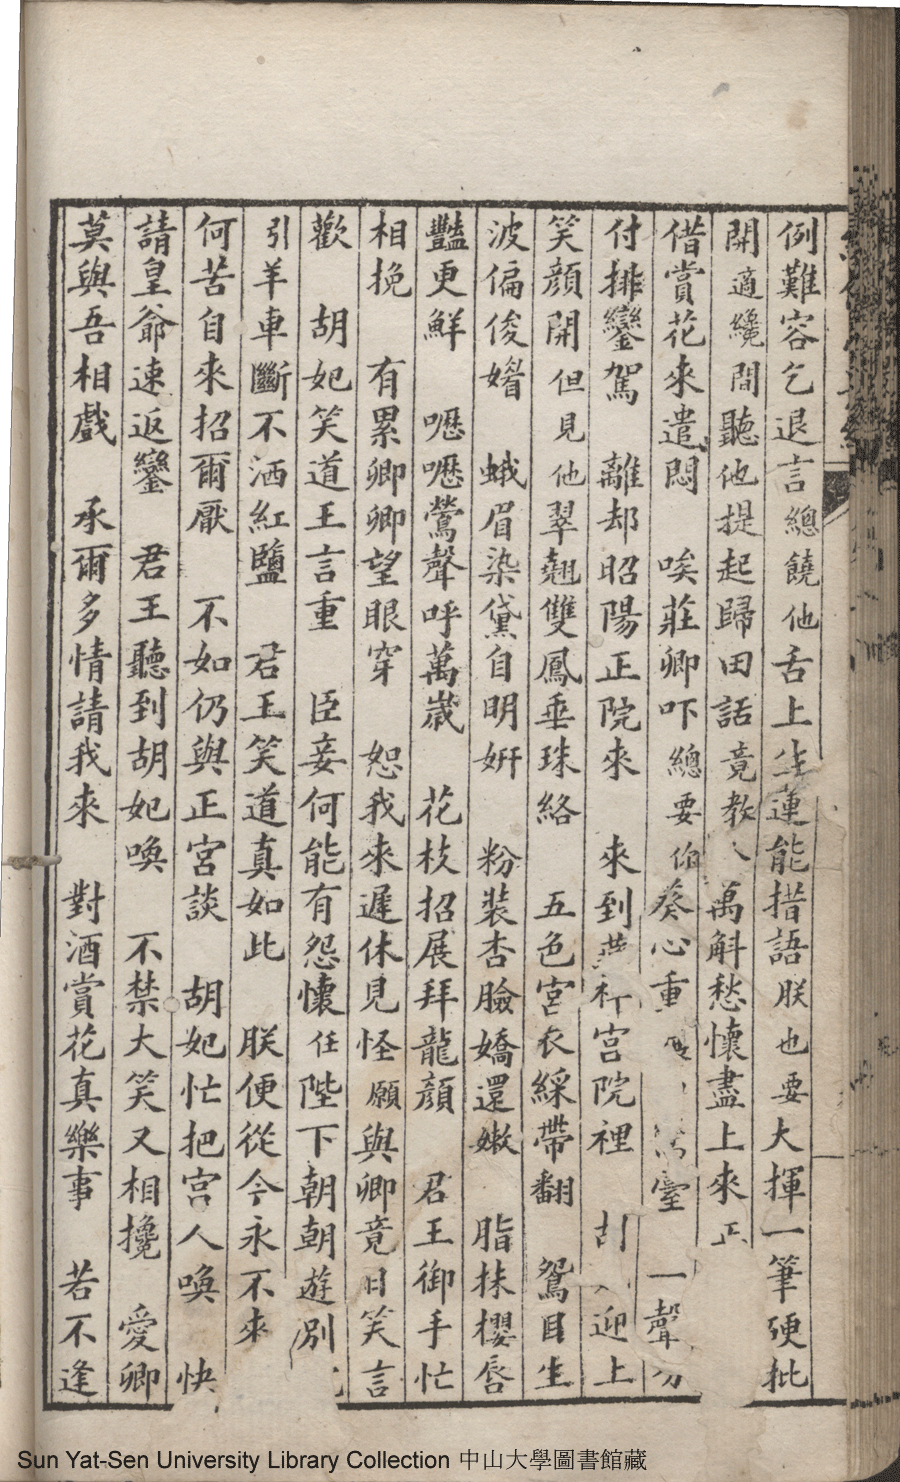 例難容乞退言總饒他舌上生蓮能措語朕也要大揮一筆硬批
開適纔間聽他提起歸田話竟教人萬斛愁懷盡上來正
借賞花來遣悶　唉莊卿吓總要伯葵心重　臺　一聲
付排鑾駕　離却昭陽正院來　來到　宮院裡　胡　迎上
笑顏開但見他翠翹雙鳳垂珠絡　五色宮衣綵帶翻　鴛目生
波偏俊媎　蛾眉染黛自明妍　粉裝杏臉嬌還嫩　脂抹櫻唇
豔更鮮　嚦嚦鶯聲呼萬歲　花枝招展拜龍顏　君王御手忙
相挽　有累卿卿望眼穿　恕我來遲休見怪願與卿竟日笑言
歡　胡妃笑道王言重　臣妾何能有怨懷任陛下朝朝遊別
引羊車斷不洒紅鹽　君王笑道真如此　朕便從今永不來
何苦自來招爾厭　不如仍與正宮談　胡妃忙把宮人喚　快
請皇爺速返鑾　君王聽到胡妃喚　不禁大笑又相攙　愛卿
莫與吾相戲　承爾多情請我來　對酒賞花真樂事　若不逢
Sun Yat-Sen University Library Collection 中山大學圖書館藏